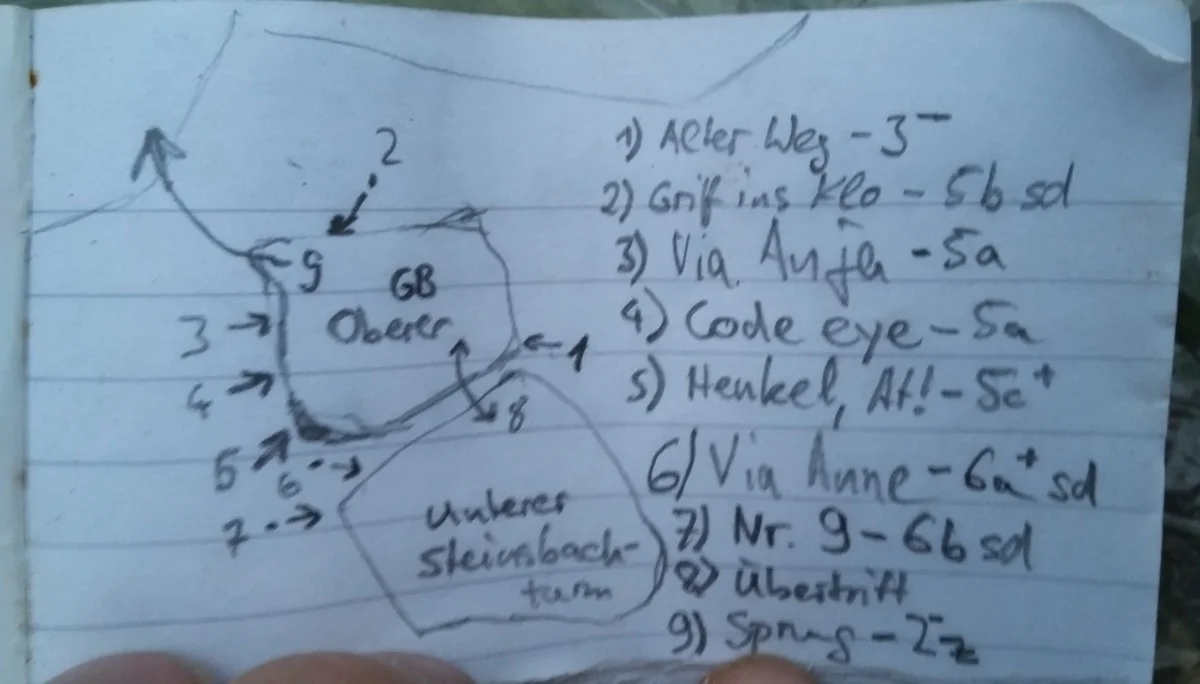 2
9
GB
Oberer
3
4
1
8
5
6
7
Unterer
Steinsbach-
turm
1) Alter Weg - 3-
2) Grif ins Klo - 5b sd
3) Via - 5a
4) Code eye - 5a
5) Henkel, At! - 5c+
6) Via Anne - 6a+ sd
7) Nr. 9 - 6b sd
8) Übertritt
9) Sprung - 2-